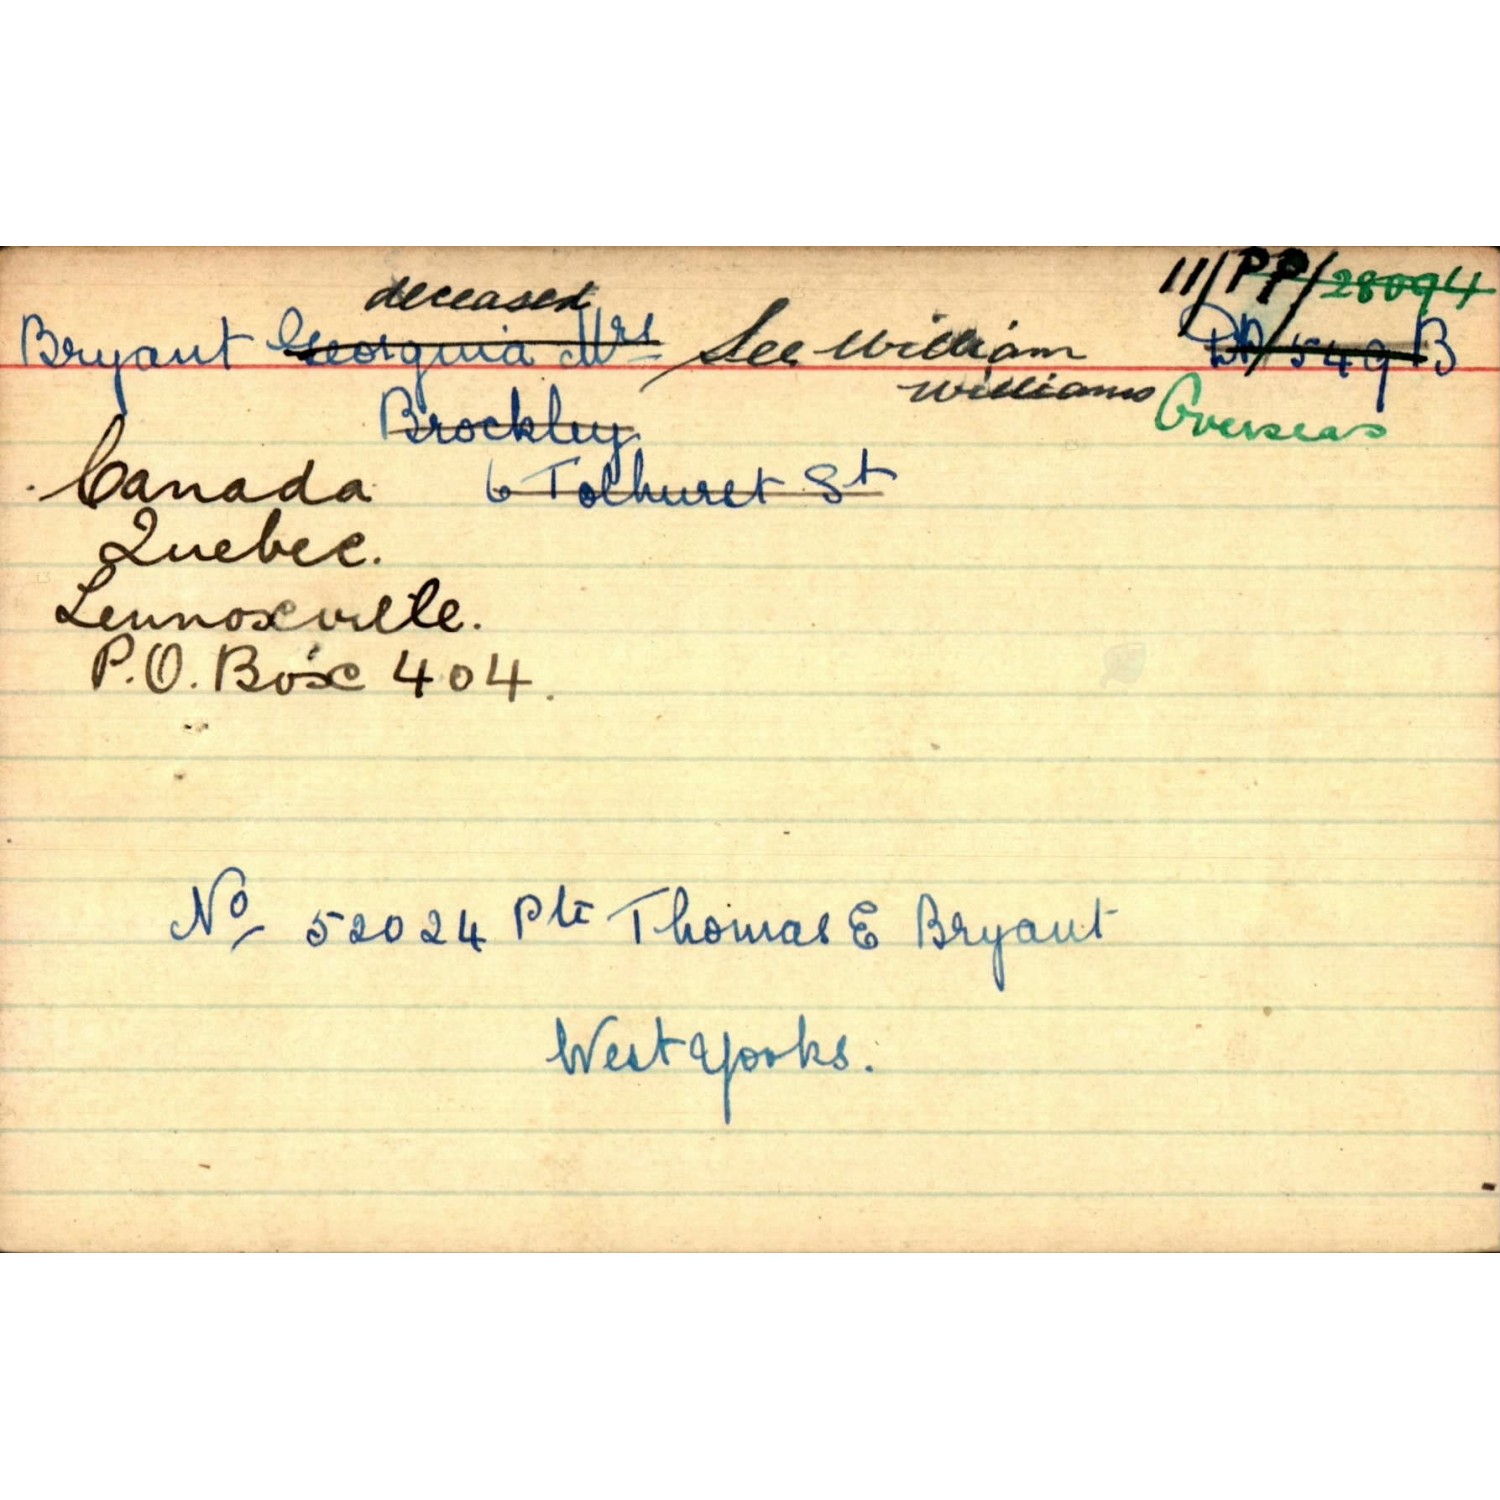 deceased 11/PP/28094
Bryant Georguia Mrs See William DA/549B
Williams Overseas
Brockley
Canada 6 Tolhurst St
Quebec.
Lennoxville.
P.O. Box 404.
No 52024 Pte Thomas E Bryant
West Yorks.